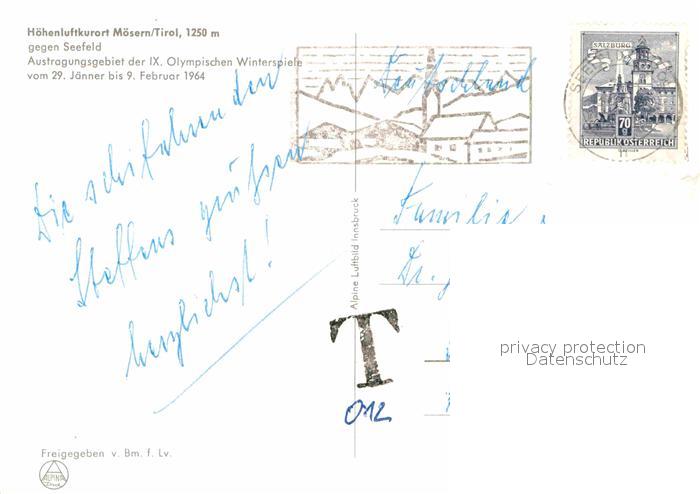 Höhenluftkurort Mösern/Tirol, 1250 m
gegen Seefeld
Austragungsgebiet der IX. Olympischen Winterspiele
vom 29. Jänner bis 9. Februar 1964
Die schifahrenden
Steffens grüßen
herzlichst!
Freigegeben v. Bm. f. Lv.
ALPINA
Druck
Alpine Luftbild Innsbruck
Deutschland
SALZBURG
70
g
REPUBLIK ÖSTERREICH
SEEFELD
Familie
Dr.
T
012
privacy protection
Datenschutz